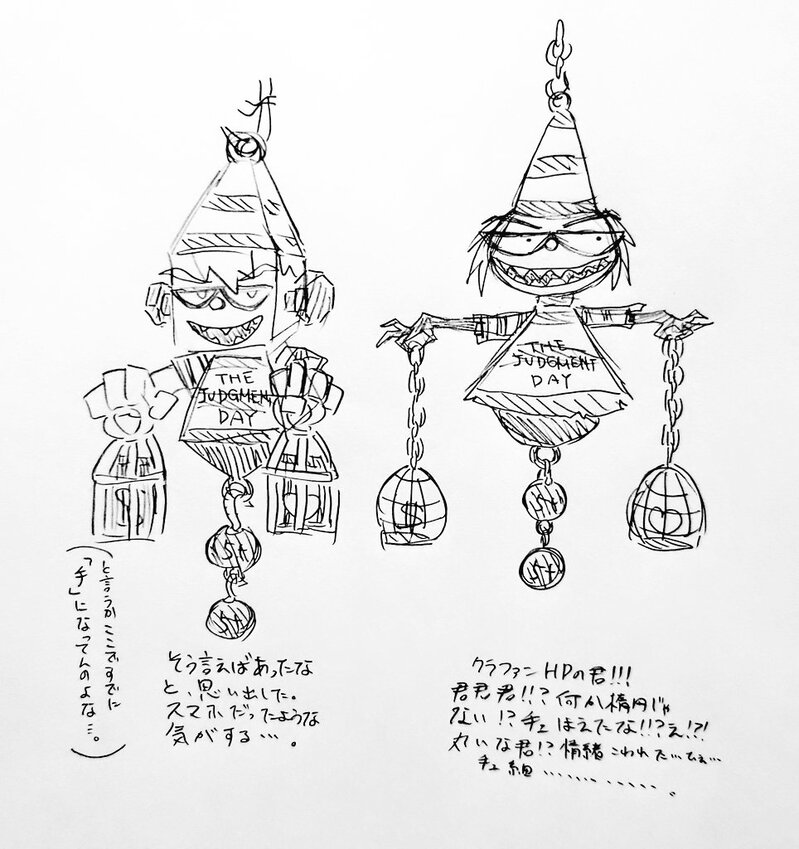 THE
JUDGMENT
DAY
THE
JUDGMENT
DAY
$
$
(と言うかここですでに
「手」になってんのよな…。)
そう言えばあったな
と、思い出した。
スマホだったような
気がする…。
クラファンHPの君!!!
君君君!!?何か楕円じゃ
ない!?手はえたな!!?え!?!
丸いな君!?情緒こわれた…
手細…………。